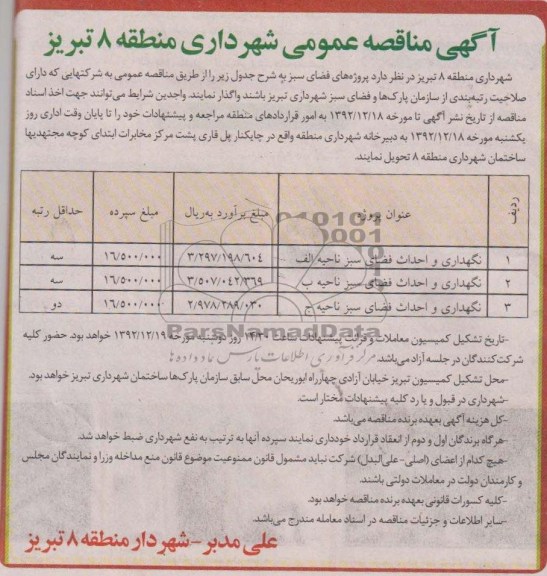 آگهی مناقصه عمومی شهرداری منطقه ۸ تبریز
شهرداری منطقه ۸ تبریز در نظر دارد پروژه‌های فضای سبز به شرح جدول زیر را از طریق مناقصه عمومی به شرکتهایی که دارای
صلاحیت رتبه‌بندی از سازمان پارک‌ها و فضای سبز شهرداری تبریز باشند واگذار نمایند. واجدین شرایط می‌توانند جهت اخذ اسناد
مناقصه از تاریخ نشر آگهی تا مورخه ۱۳۹۲/۱۲/۱۸ به امور قراردادهای منطقه مراجعه و پیشنهادات خود را تا پایان وقت اداری روز
یکشنبه مورخه ۱۳۹۲/۱۲/۱۸ به دبیرخانه شهرداری منطقه واقع در چایکنار پل قاری پشت مرکز مخابرات ابتدای کوچه مجتهدیها
ساختمان شهرداری منطقه ۸ تحویل نمایند.
ردیف عنوان پروژه مبلغ برآورد به‌ریال مبلغ سپرده حداقل رتبه
۱ نگهداری و احداث فضای سبز ناحیه الف ۳/۲۹۷/۱۹۸/۶۰۴ ۱۶/۵۰۰/۰۰۰ سه
۲ نگهداری و احداث فضای سبز ناحیه ب ۳/۵۰۷/۰۴۲/۳۶۹ ۱۶/۵۰۰/۰۰۰ سه
۳ نگهداری و احداث فضای سبز ناحیه ج ۲/۹۷۸/۲۸۹/۰۳۰ ۱۶/۵۰۰/۰۰۰ دو
ParsNamadData
-تاریخ تشکیل کمیسیون معاملات و قرائت پیشنهادات ساعت ۱۴/۳۰ روز دوشنبه مورخه ۱۳۹۲/۱۲/۱۹ خواهد بود. حضور کلیه
شرکت‌کنندگان در جلسه آزاد می‌باشد.
-محل تشکیل کمیسیون تبریز خیابان آزادی چهارراه ابوریحان محل سابق سازمان پارک‌ها ساختمان شهرداری تبریز خواهد بود.
-شهرداری در قبول و یا رد کلیه پیشنهادات مختار است.
-کل هزینه آگهی بعهده برنده مناقصه می‌باشد.
-هرگاه برندگان اول و دوم از انعقاد قرارداد خودداری نمایند سپرده آنها به ترتیب به نفع شهرداری ضبط خواهد شد.
-هیچ کدام از اعضای (اصلی-علی‌البدل) شرکت نباید مشمول قانون ممنوعیت موضوع قانون منع مداخله وزرا و نمایندگان مجلس
و کارمندان دولت در معاملات دولتی باشند.
-کلیه کسورات قانونی بعهده برنده مناقصه خواهد بود.
-سایر اطلاعات و جزئیات مناقصه در اسناد معامله مندرج می‌باشد.
علی مدبر-شهردار منطقه ۸ تبریز